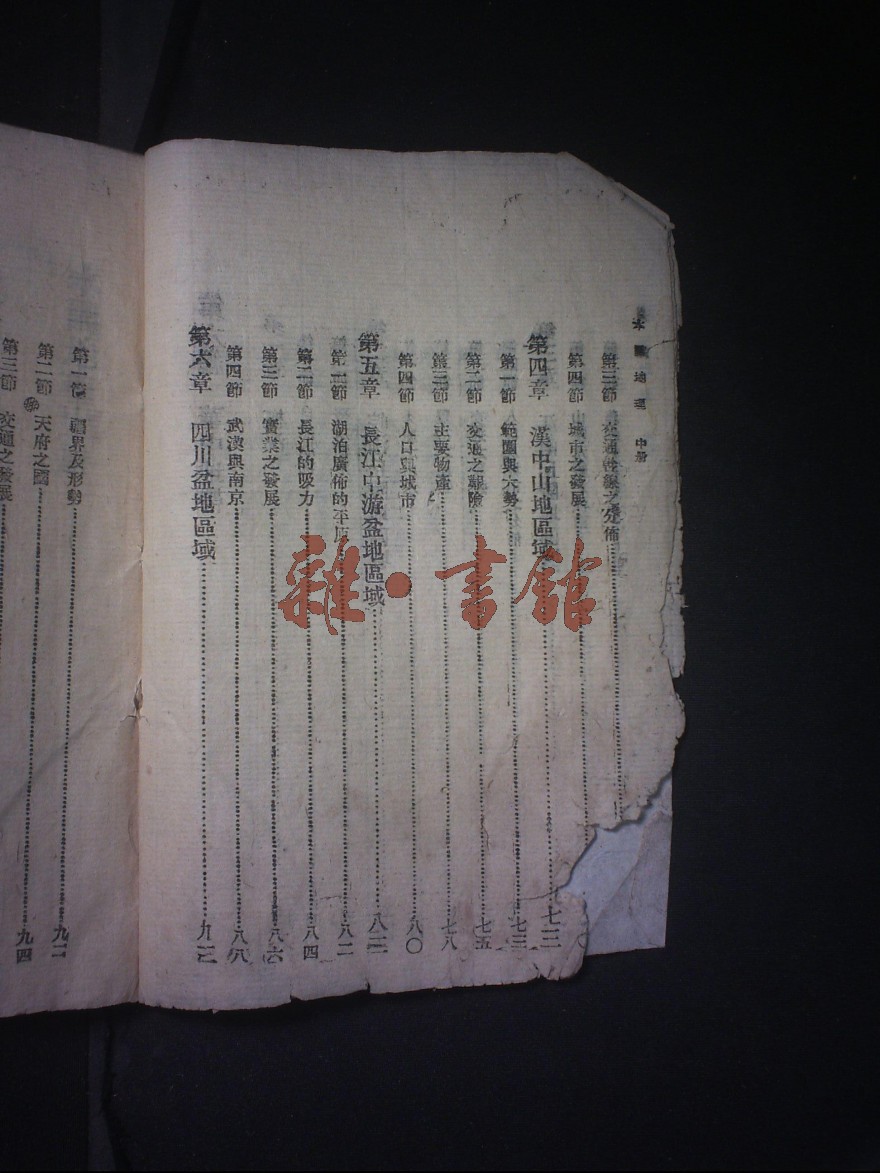 本國地理 中册
第三節 交通幹線之分佈
第四節 城市之發展
第四章 漢中山地區域 七三
第一節 範圍與大勢 七三
第二節 交通之艱險 七五
第三節 主要物產 七八
第四節 人口與城市 八〇
第五章 長江中游盆地區域 八二
第一節 湖泊廣佈的平原 八二
第二節 長江的吸力 八四
第三節 實業之發展 八六
第四節 武漢與南京 八八
第六章 四川盆地區域 九二
第一節 疆界及形勢 九二
第二節 天府之國 九四
第三節 交通之發展
雜·書館